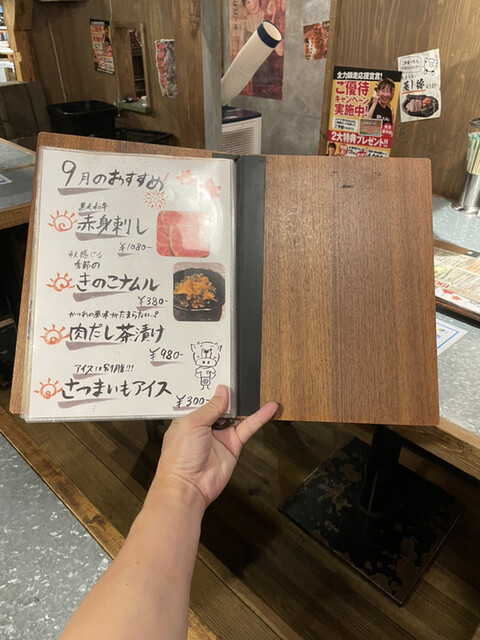 9月のおすすめ
黒毛和牛
赤身刺し
¥1080-
秋感じる
季節の
きのこナムル
¥380-
かつおの風味がたまらない♪
肉だし茶漬け
¥980-
アイスは別腹!!!
さつまいもアイス
¥300-
全力師走応援宣言!
ご優待
キャンペーン
実施中!
2大特典プレゼント!!